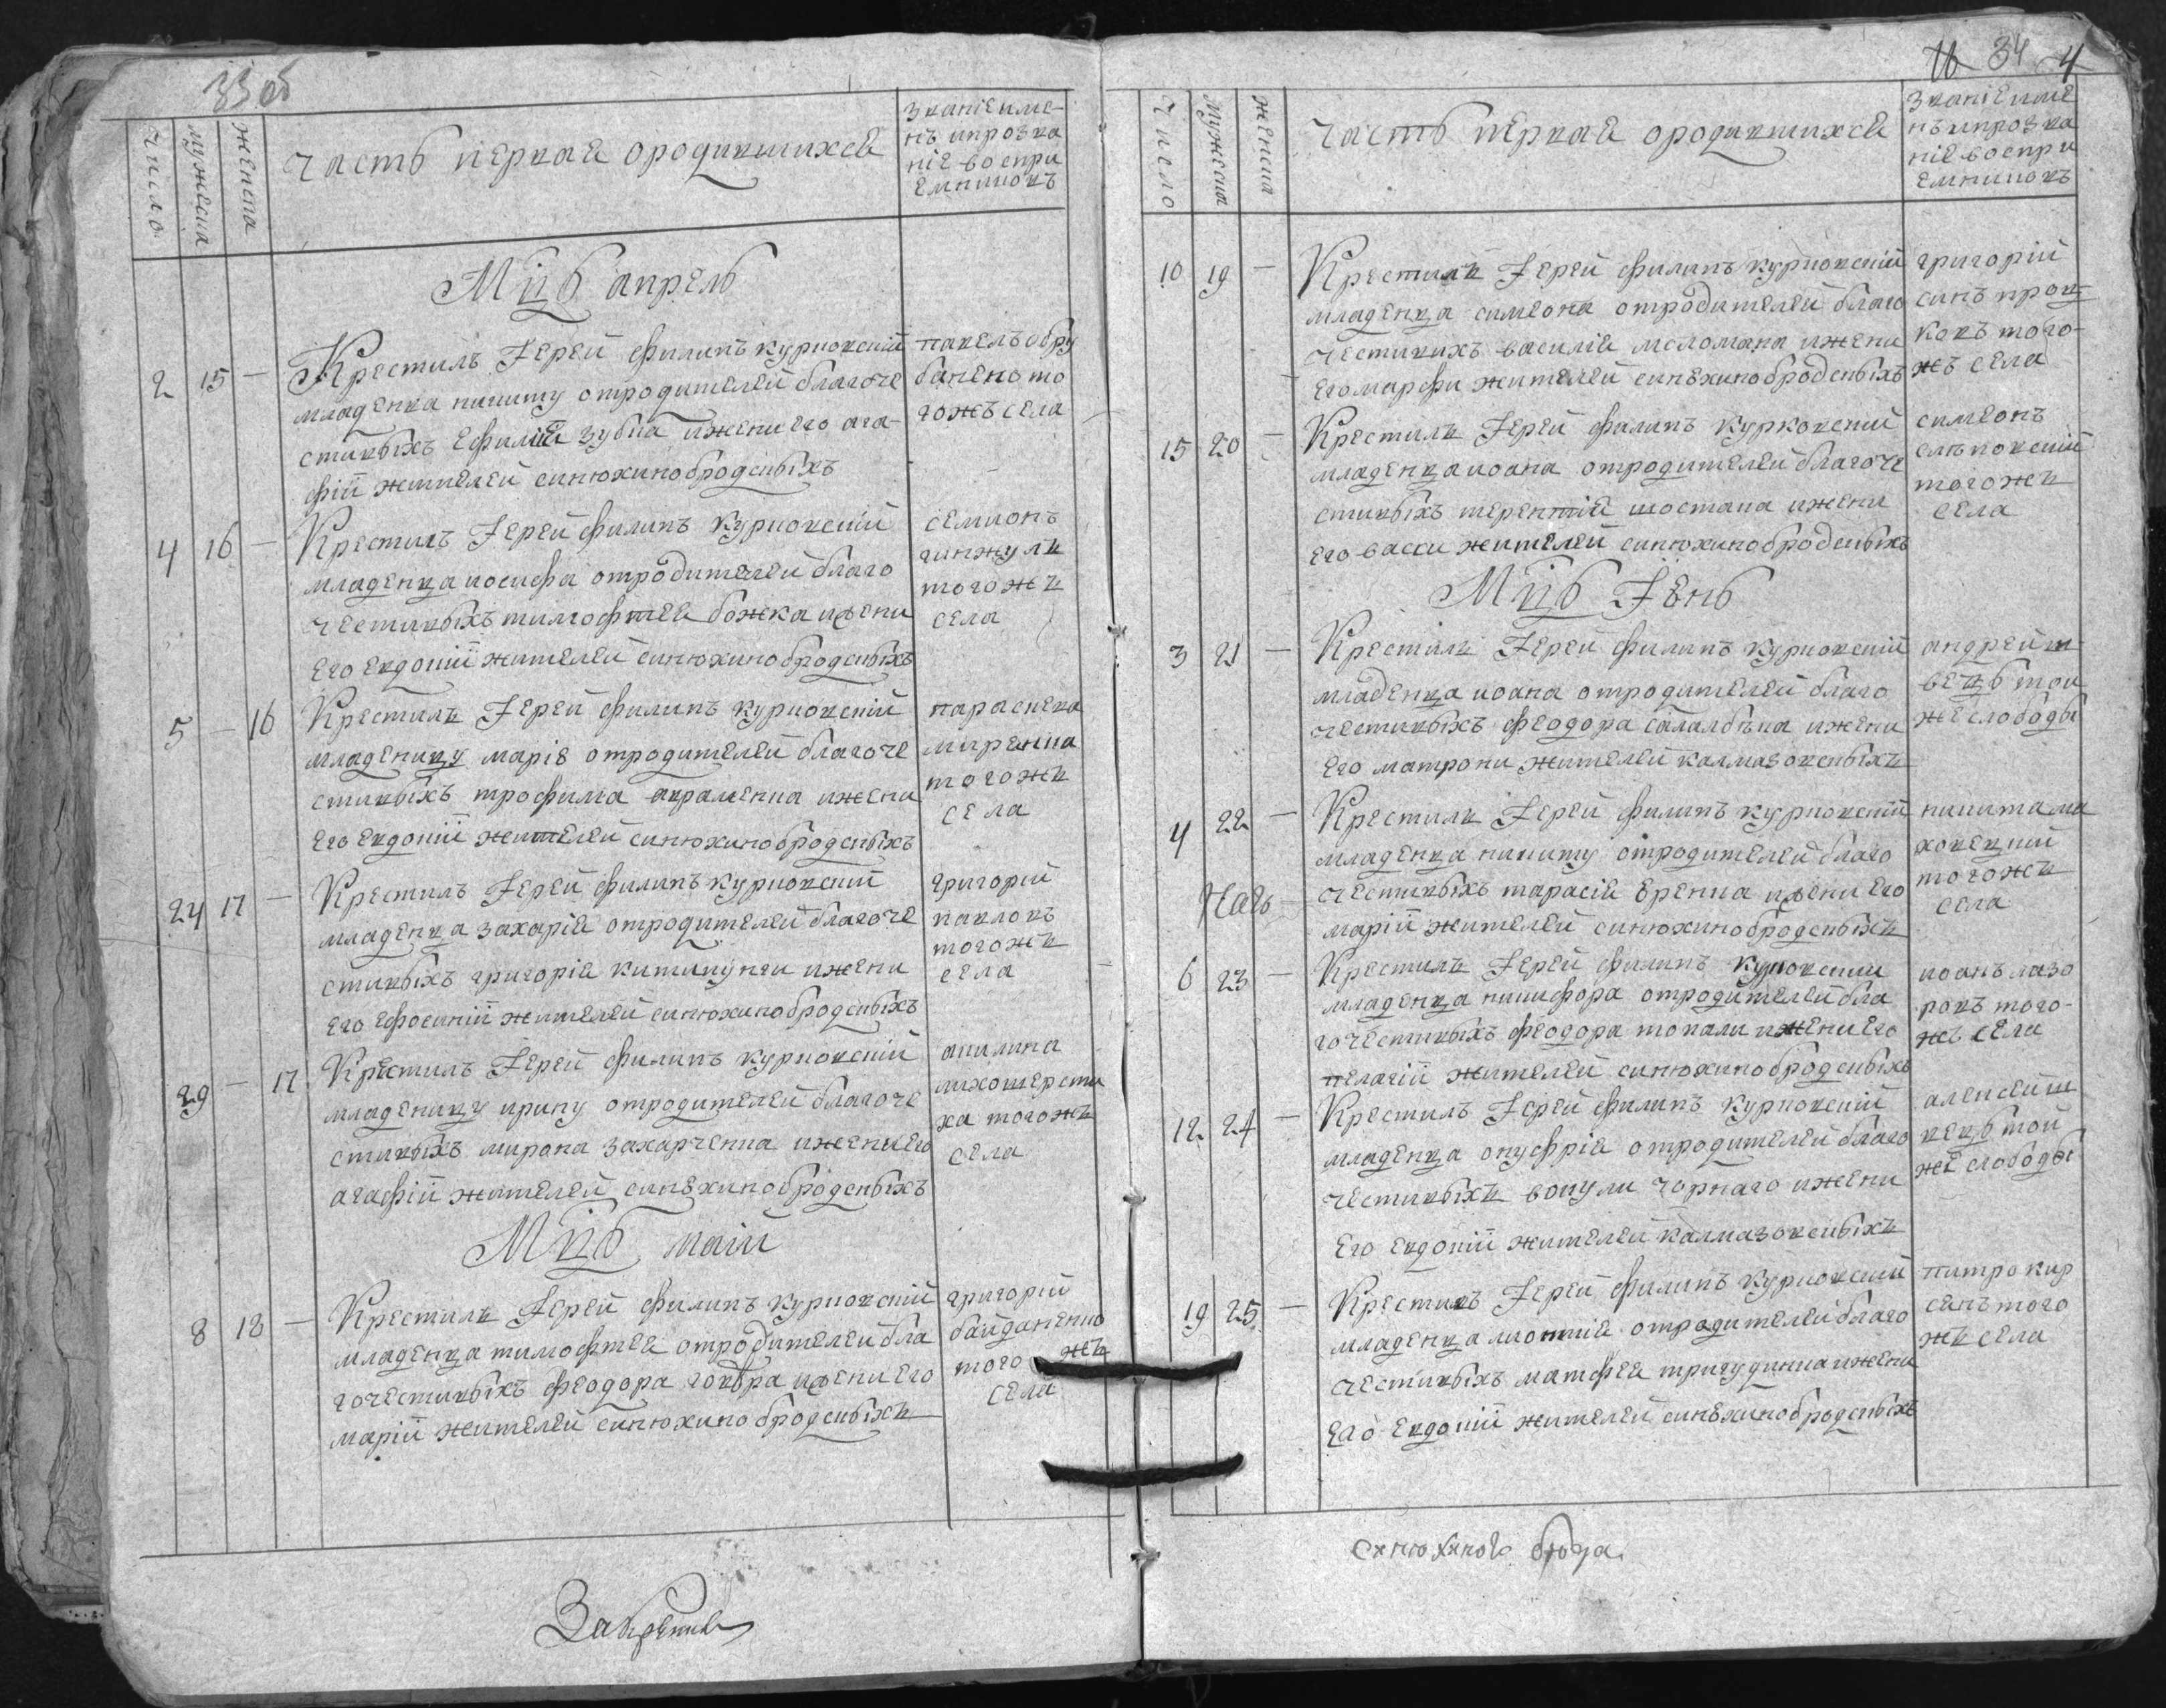 33 об
число
мужеска
женска
Часть первая ородившихся
звание име-
нъ ипрозва
ніе воспри
емниковъ
Мцъ апрель
2 15 — Крестилъ Іерей филипъ курковскій
младенца никиту отродителей благоче
стивыхъ ефимія зубка ижени его ага-
фіи жителей синюхинобродскыхъ
павелъ обру
баненко то
гожъ села
4 16 — Крестилъ Іерей филипъ курковскій
младенца иосифа отродителей благо
честивыхъ тимофтея божка ижени
его евдокіи жителей синюхинобродскыхъ
семионъ
тогожъ
села
5 — 16 Крестилъ Іерей филипъ курковскій
младеницу марію отродителей благоче
стивыхъ трофима авраменка ижени
его евдокіи жителей синюхинобродскыхъ
параскева
тогожъ
села
24 17 — Крестилъ Іерей филипъ курковскій
младенца захарія отродителей благоче
стивыхъ григорія ижени
его ефросиніи жителей синюхинобродскыхъ
григорій
павловъ
тогожъ
села
29 — 17 Крестилъ Іерей филипъ курковскій
младеницу ирину отродителей благоче
стивыхъ мирона захарченка ижени его
агафіи жителей синюхинобродскыхъ
акилина
лихошерсти
ха тогожъ
села
Мцъ маій
8 18 — Крестилъ Іерей филипъ курковскій
младенца тимофтея отродителей бла
гочестивыхъ феодора говора ижени его
маріи жителей синюхинобродскыхъ
григорій
байдаченко
того жъ
села
34 4
число
мужеска
женска
Часть первая ородившихся
звание име
нъ ипрозва
ніе воспри
емниковъ
10 19 — Крестилъ Іерей филипъ курковскій
младенца симеона отродителей благо
честивихъ василія меломана ижени
его марфи жителей синюхинобродскыхъ
григорій
синъ
ковъ того-
жъ села
15 20 — Крестилъ Іерей филипъ курковскій
младенца иоана отродителей благоче
стивыхъ терентія шостака ижени
его васси жителей синюхинобродскыхъ
симеонъ
слѣповскій
тогожъ
села
Мцъ Іюнь
3 21 — Крестилъ Іерей филипъ курковскій
младенца иоана отродителей благо
честивыхъ феодора ижени
его матрони жителей калмазовскыхъ
андрей ш
вецъ той
же слободы
4 22 — Крестилъ Іерей филипъ курковскій
младенца никиту отродителей благо
честивыхъ тарасія еренка ижени его
маріи жителей синюхинобродскыхъ
никита ма
ховецкий
тогожъ
села
6 23 — Крестилъ Іерей филипъ курковский
младенца никифора отродителей бла
гочестивыхъ феодора топали ижени его
пелагіи жителей синюхинобродскыхъ
иоанъ лазо
ровъ того-
жъ села
12 24 — Крестилъ Іерей филипъ курковскій
младенца онуфрія отродителей благо
честивыхъ вокули чорнаго ижени
его евдокіи жителей калмазовскыхъ
алексей ш
вецъ той
же слободы
19 25 — Крестилъ Іерей филипъ курковский
младенца леонтія отродителей благо
честивыхъ матфея тригудинка ижени
его евдокіи жителей синюхинобродскыхъ
питро кир
санъ того
жъ села
синюхиного брода